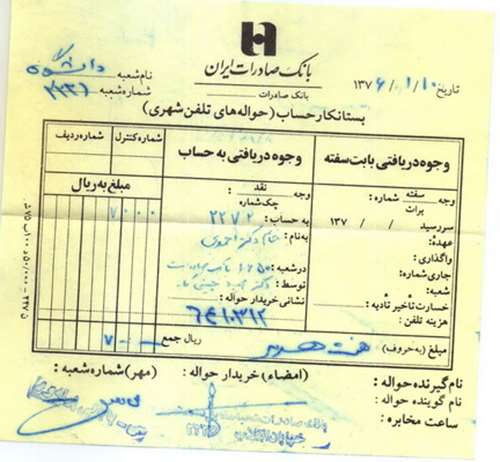 بانک صادرات ایران
بانک صادرات
تاریخ ۱۰/۰۱/۱۳۷۶
نام شعبه : دانشکده
شماره شعبه : ۲۲۳۶
بستانکار حساب (حواله های تلفن شهری)
وجوه دریافتی بابت سفته
وجوه دریافتی به حساب
شماره کنترل
شماره ردیف
وجه سفته برات شماره :
وجه نقد چک شماره
مبلغ به ریال
سررسید / / ۱۳۷
به حساب : ۲۲۷۲
۷۰۰۰
عهده :
بنام : خانم دکتر احمدی
واگذاری :
جاری شماره :
در شعبه : ۱۶۵۰
شعبه :
توسط : دکتر
خسارت تأخیر تأدیه :
نشانی خریدار حواله :
هزینه تلفن :
۶۴۱۰۳۱۲
مبلغ (به حروف) هفت هزار
ریال جمع ۷۰۰۰
نام گیرنده حواله :
(امضاء) خریدار حواله :
(مهر) شماره شعبه :
نام گوینده حواله :
ساعت مخابره :